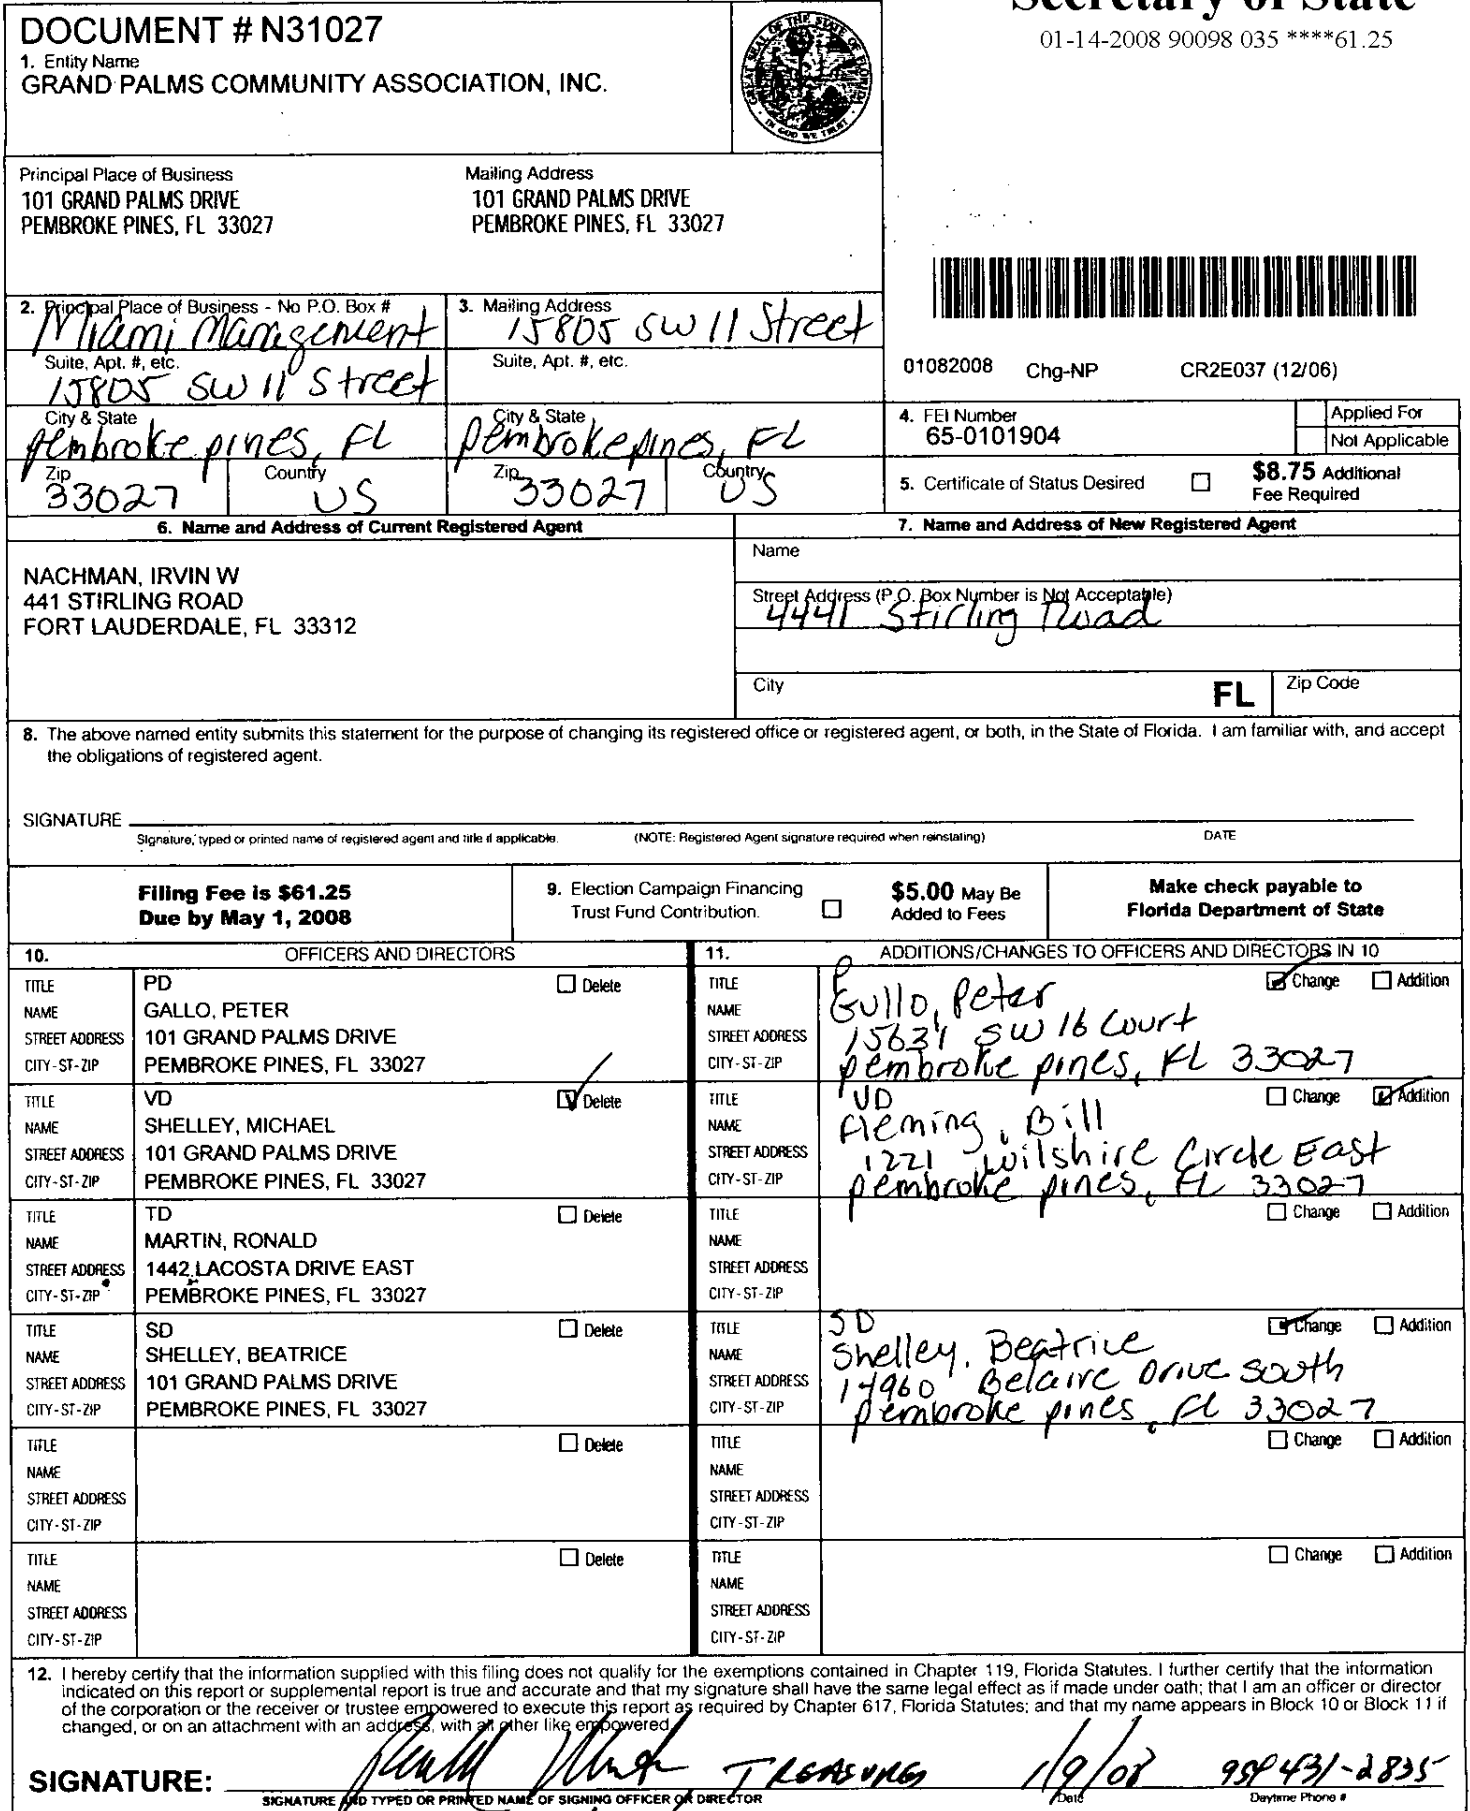 Secretary of State
DOCUMENT # N31027
01-14-2008 90098 035 ****61.25
1. Entity Name
GRAND PALMS COMMUNITY ASSOCIATION, INC.
GREAT SEAL OF THE STATE OF FLORIDA
IN GOD WE TRUST
Principal Place of Business
101 GRAND PALMS DRIVE
PEMBROKE PINES, FL 33027
Mailing Address
101 GRAND PALMS DRIVE
PEMBROKE PINES, FL 33027
2. Principal Place of Business - No P.O. Box #
Miami Management
Suite, Apt. #, etc.
15805 SW 11 Street
City & State
Pembroke pines, FL
Zip
33027
Country
US
3. Mailing Address
15805 SW 11 Street
Suite, Apt. #, etc.
City & State
Pembroke pines, FL
Zip
33027
Country
US
01082008 Chg-NP CR2E037 (12/06)
4. FEI Number
65-0101904
Applied For
Not Applicable
5. Certificate of Status Desired
$8.75 Additional
Fee Required
6. Name and Address of Current Registered Agent
NACHMAN, IRVIN W
441 STIRLING ROAD
FORT LAUDERDALE, FL 33312
7. Name and Address of New Registered Agent
Name
Street Address (P.O. Box Number is Not Acceptable)
4441 Stirling Road
City
FL
Zip Code
8. The above named entity submits this statement for the purpose of changing its registered office or registered agent, or both, in the State of Florida. I am familiar with, and accept
the obligations of registered agent.
SIGNATURE
Signature, typed or printed name of registered agent and title if applicable. (NOTE: Registered Agent signature required when reinstating) DATE
Filing Fee is $61.25
Due by May 1, 2008
9. Election Campaign Financing
Trust Fund Contribution.
$5.00 May Be
Added to Fees
Make check payable to
Florida Department of State
10. OFFICERS AND DIRECTORS
TITLE PD Delete
NAME GALLO, PETER
STREET ADDRESS 101 GRAND PALMS DRIVE
CITY-ST-ZIP PEMBROKE PINES, FL 33027
TITLE VD Delete
NAME SHELLEY, MICHAEL
STREET ADDRESS 101 GRAND PALMS DRIVE
CITY-ST-ZIP PEMBROKE PINES, FL 33027
TITLE TD Delete
NAME MARTIN, RONALD
STREET ADDRESS 1442 LACOSTA DRIVE EAST
CITY-ST-ZIP PEMBROKE PINES, FL 33027
TITLE SD Delete
NAME SHELLEY, BEATRICE
STREET ADDRESS 101 GRAND PALMS DRIVE
CITY-ST-ZIP PEMBROKE PINES, FL 33027
TITLE Delete
NAME
STREET ADDRESS
CITY-ST-ZIP
TITLE Delete
NAME
STREET ADDRESS
CITY-ST-ZIP
11. ADDITIONS/CHANGES TO OFFICERS AND DIRECTORS IN 10
TITLE P Change Addition
NAME Gullo, Peter
STREET ADDRESS 15631 SW 16 Court
CITY-ST-ZIP pembroke pines, FL 33027
TITLE VD Change Addition
NAME Fleming, Bill
STREET ADDRESS 1221 Wilshire Circle East
CITY-ST-ZIP pembroke pines, FL 33027
TITLE Change Addition
NAME
STREET ADDRESS
CITY-ST-ZIP
TITLE SD Change Addition
NAME Shelley, Beatrice
STREET ADDRESS 14960 Belaire Drive South
CITY-ST-ZIP pembroke pines, FL 33027
TITLE Change Addition
NAME
STREET ADDRESS
CITY-ST-ZIP
TITLE Change Addition
NAME
STREET ADDRESS
CITY-ST-ZIP
12. I hereby certify that the information supplied with this filing does not qualify for the exemptions contained in Chapter 119, Florida Statutes. I further certify that the information
indicated on this report or supplemental report is true and accurate and that my signature shall have the same legal effect as if made under oath; that I am an officer or director
of the corporation or the receiver or trustee empowered to execute this report as required by Chapter 617, Florida Statutes; and that my name appears in Block 10 or Block 11 if
changed, or on an attachment with an address, with all other like empowered.
SIGNATURE: TREASURER 1/9/08 954 431-2835
SIGNATURE AND TYPED OR PRINTED NAME OF SIGNING OFFICER OR DIRECTOR Date Daytime Phone #